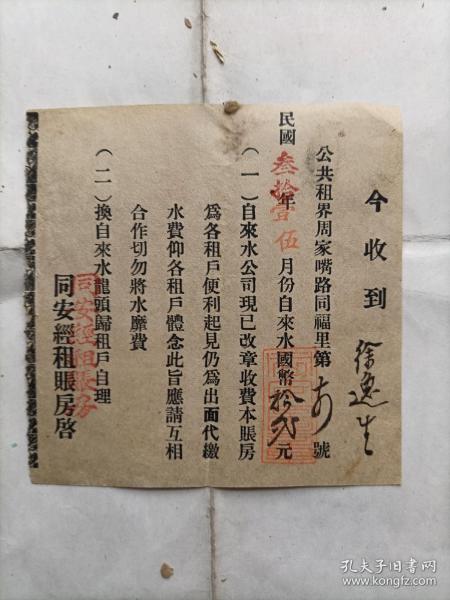 今收到 徐逸生
公共租界周家嘴路同福里第 號
民國叁拾壹年伍月份自來水國幣拾弍元
（一）自來水公司現已改章收費本賬房
為各租戶便利起見仍為出面代繳
水費仰各租戶體念此旨應請互相
合作切勿將水靡費
（二）換自來水龍頭歸租戶自理
同安經租賬房啓
同安經租賬房
孔夫子旧书网
www.kongfz.com